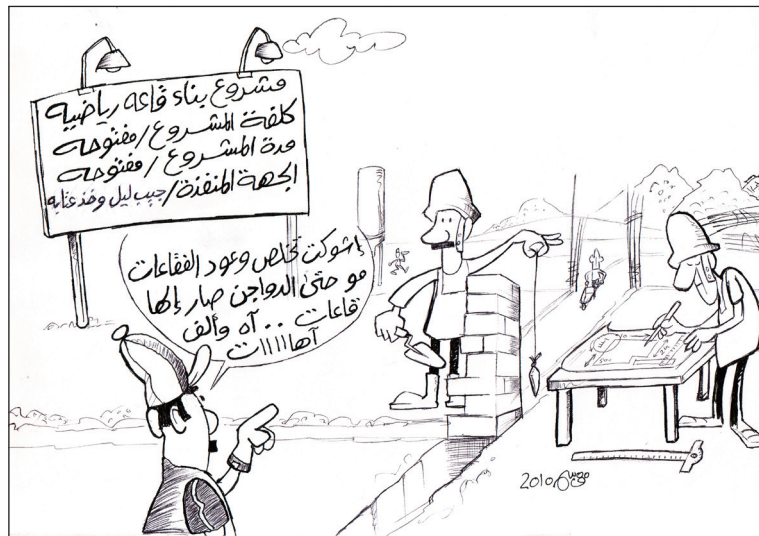 مشروع بناء قاعه رياضيه
كلفة المشروع/مفتوحه
مدة المشروع/مفتوحه
الجهة المنفذة/جيب ليل وخذ عتابه
إشوكت تخلص وعود الفقاعات
مو حتى الدواجن صار إلها
قاعات .. آه وألف
آهااااات
2010